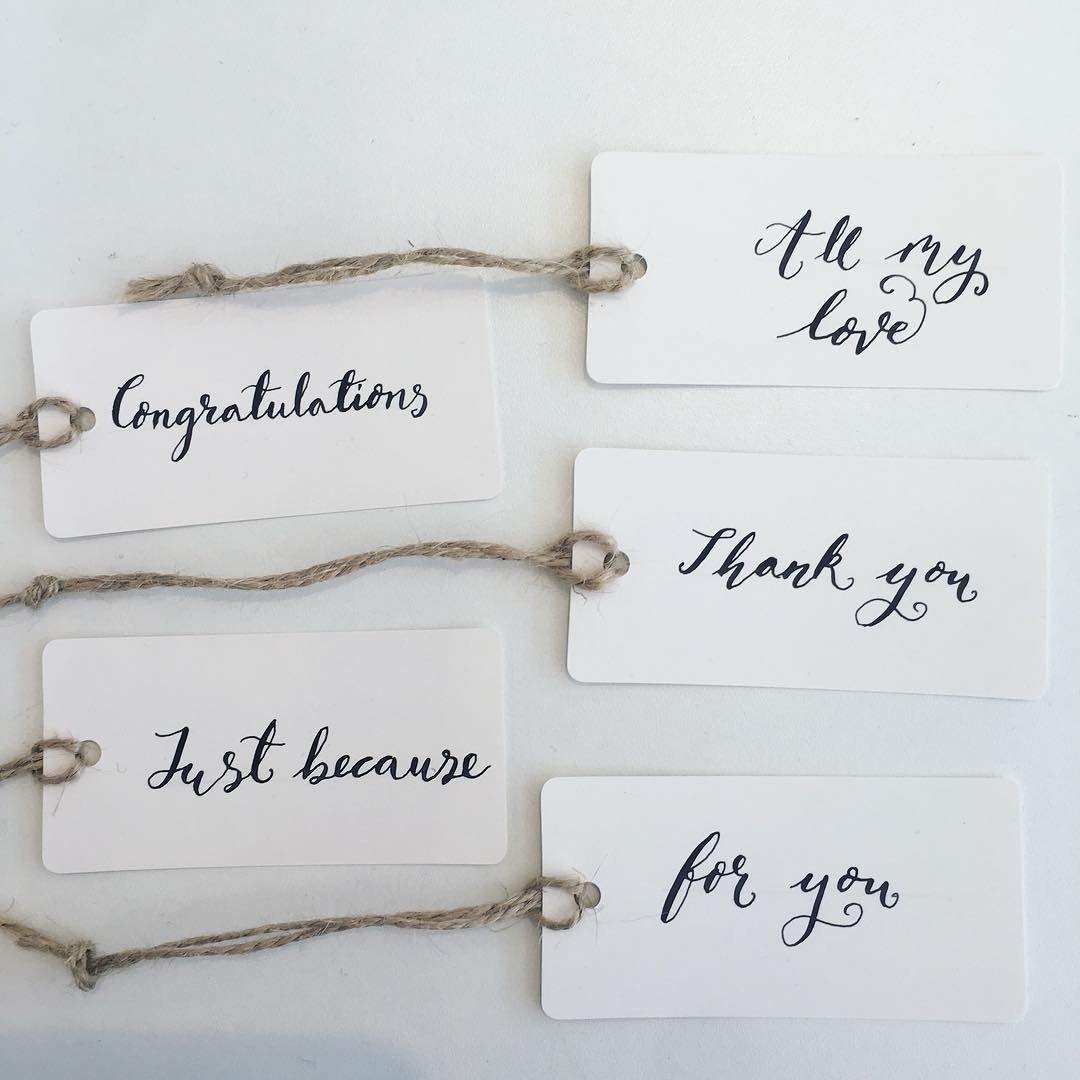 All my
love
Congratulations
Thank you
Just because
for you